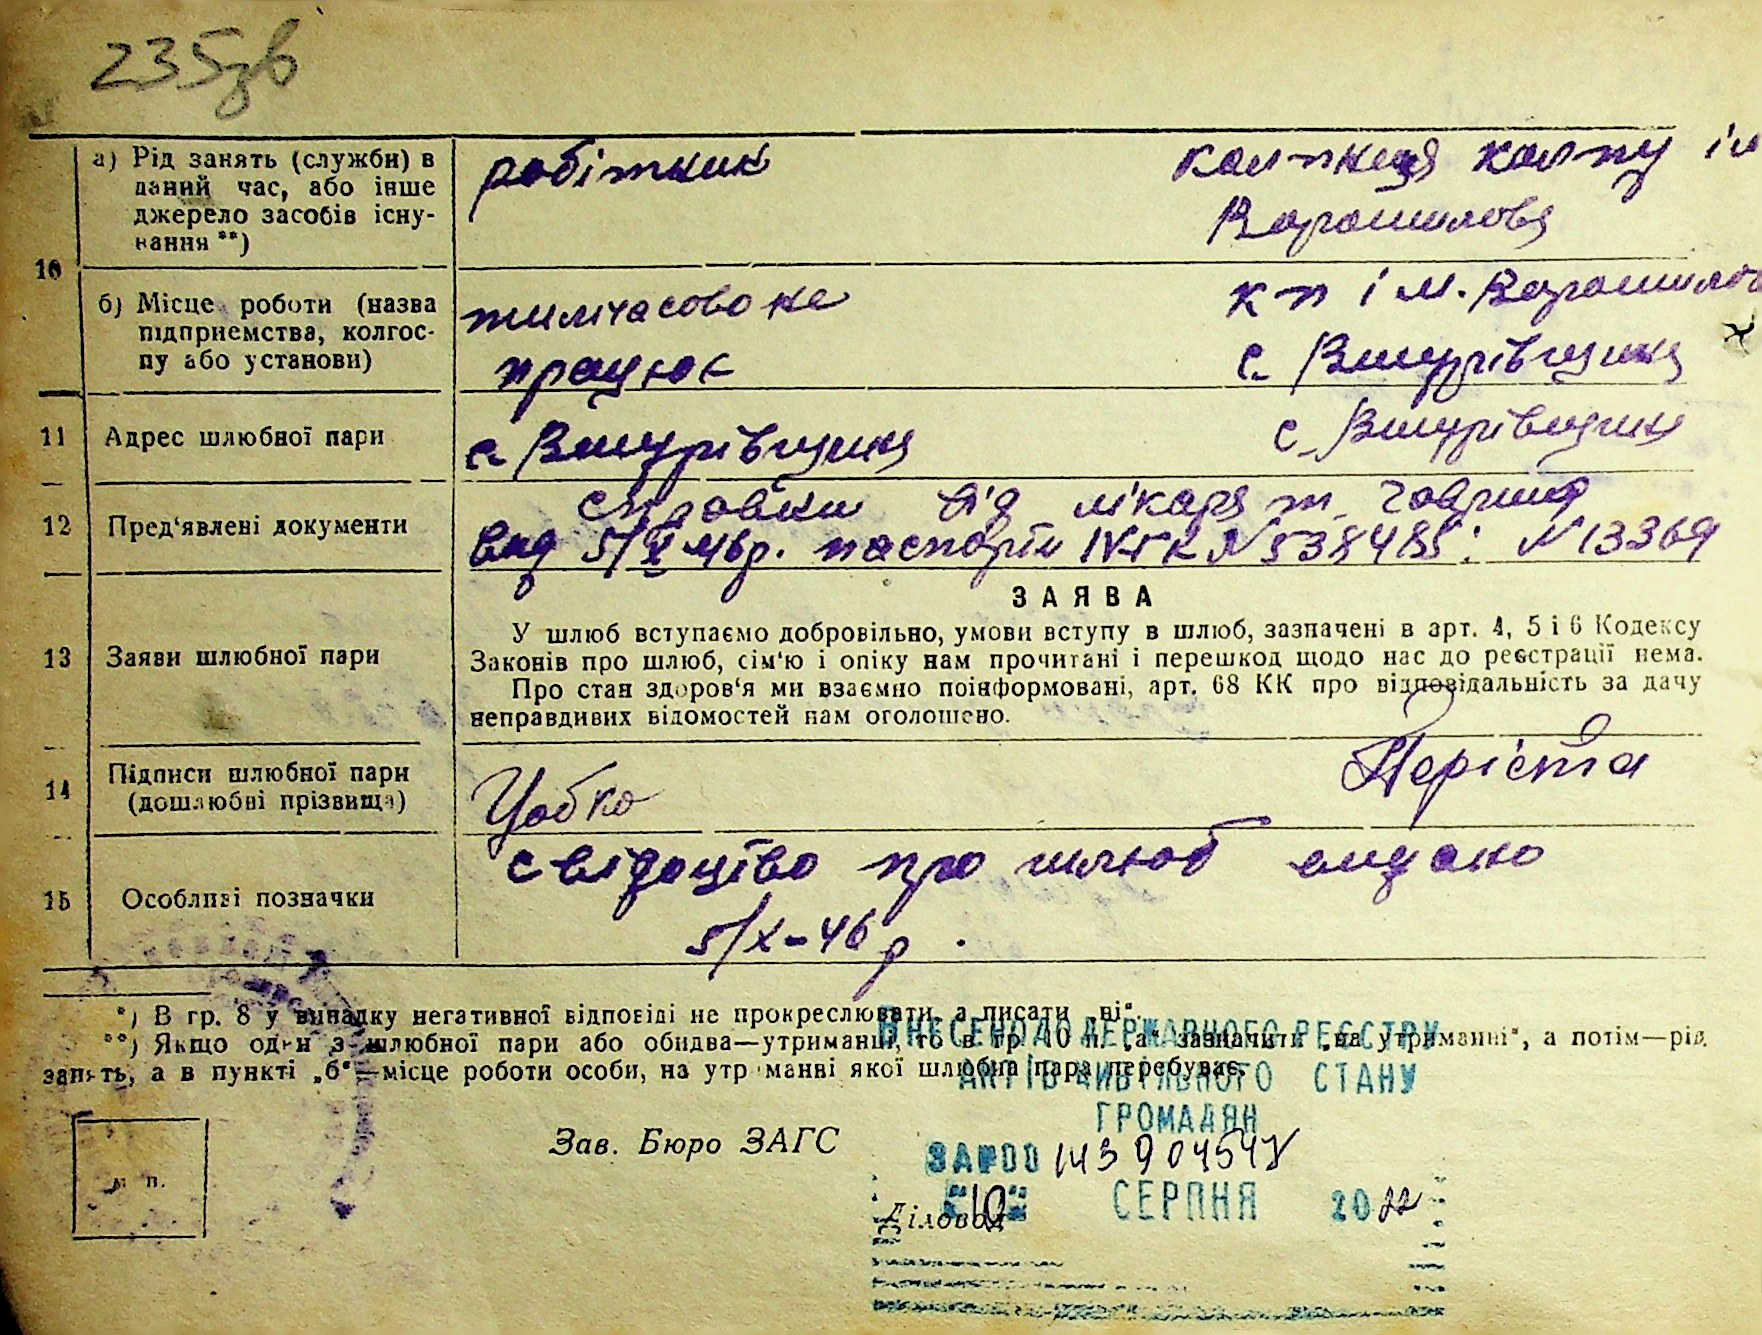 235зв
а) Рід занять (служби) в
даний час, або інше
джерело засобів існу-
вання **)
робітник
колпниця колпу ім
Ворошилова
10
б) Місце роботи (назва
підприємства, колгос-
пу або установи)
тимчасово не
працює
к п ім. Ворошилова
с. Вишурівщина
11 Адрес шлюбної пари
с. Вишурівщина с. Вишурівщина
12 Пред'явлені документи
справки від лікаря т.
вид 5/X 46р. паспорти № 538485: № 13369
ЗАЯВА
13 Заяви шлюбної пари
У шлюб вступаємо добровільно, умови вступу в шлюб, зазначені в арт. 4, 5 і 6 Кодексу
Законів про шлюб, сім'ю і опіку нам прочитані і перешкод щодо нас до реєстрації нема.
Про стан здоров'я ми взаємно поінформовані, арт. 68 КК про відповідальність за дачу
неправдивих відомостей нам оголошено.
14 Підписи шлюбної пари
(дошлюбні прізвища)
Цобко Періста
15 Особливі позначки
свідоцтво про шлюб видано
5/X-46р.
*) В гр. 8 у випадку негативної відповіді не прокреслювати, а писати „ні“.
**) Якщо один з шлюбної пари або обидва—утриманці, то в гр. 10 п. „а“ зазначити „на утриманні“, а потім—рід
занять, а в пункті „б“—місце роботи особи, на утриманні якої шлюбна пара перебуває.
ВНЕСЕНО ДО ДЕРЖАВНОГО РЕЄСТРУ
АКТІВ ЦИВІЛЬНОГО СТАНУ
ГРОМАДЯН
Зав. Бюро ЗАГС
ЗА №00143904547
м. п.
10 СЕРПНЯ 2022
Діловод